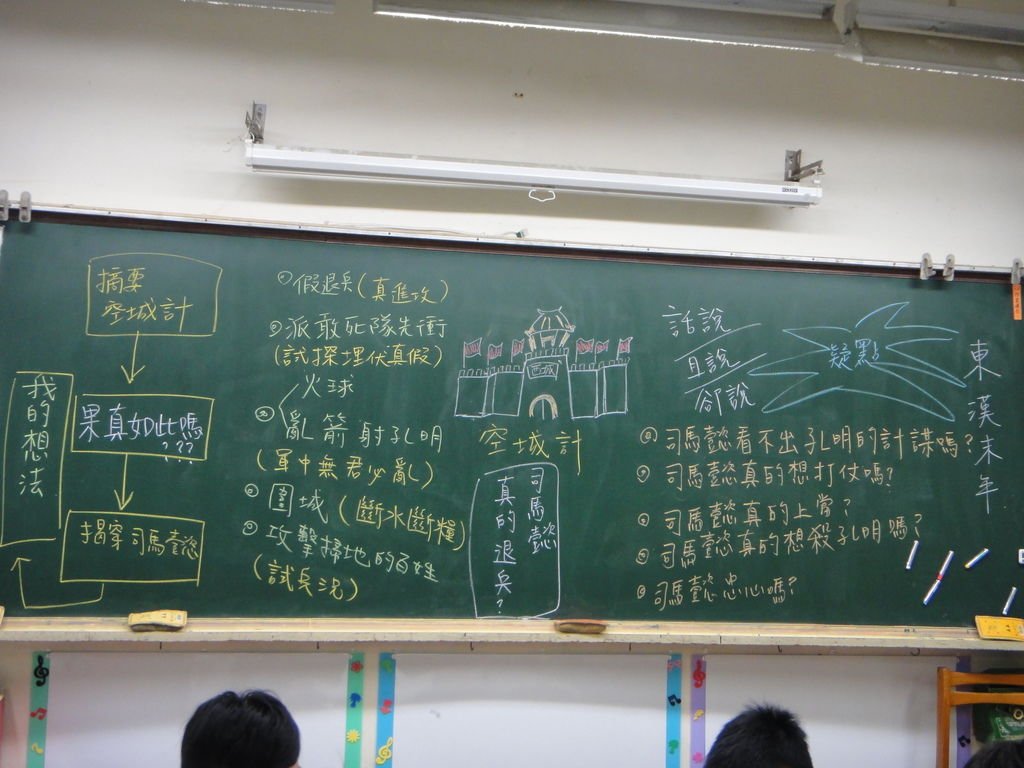 摘要
空城計
果真如此嗎
???
揭穿司馬懿
我的想法
①假退兵(真進攻)
②派敢死隊先衝
(試探埋伏真假)
③火球
亂箭射孔明
(軍中無君必亂)
圍城(斷水斷糧)
攻擊掃地的百姓
(試兵況)
西城
空城計
司馬懿
真的退兵?
話說
且說
卻說
疑點
東漢末年
司馬懿看不出孔明的計謀嗎?
司馬懿真的想打仗嗎?
司馬懿真的上當?
司馬懿真的想殺孔明嗎?
司馬懿忠心嗎?